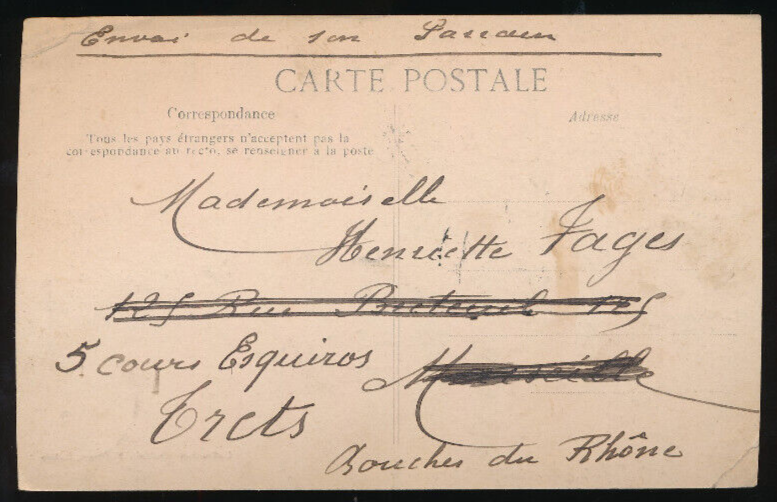 Envoi de son
CARTE POSTALE
Correspondance
Adresse
Tous les pays étrangers n'acceptent pas la
correspondance au recto, se renseigner à la poste
Mademoiselle
Henriette Tages
125 Rue Breteuil 125
5. cours Esquiros
Marseille
Trets
Bouches du Rhône